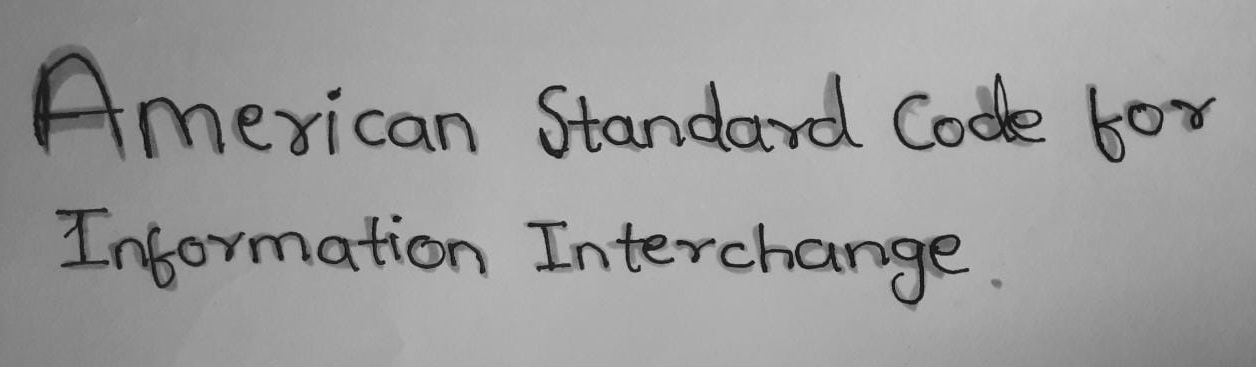 American Standard Code for
Information Interchange.